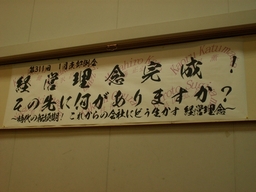 第311回 1月度例会
経営理念完成!
その先に何がありますか?
〜時代の転換期?これからの会社にどう生かす 経営理念〜